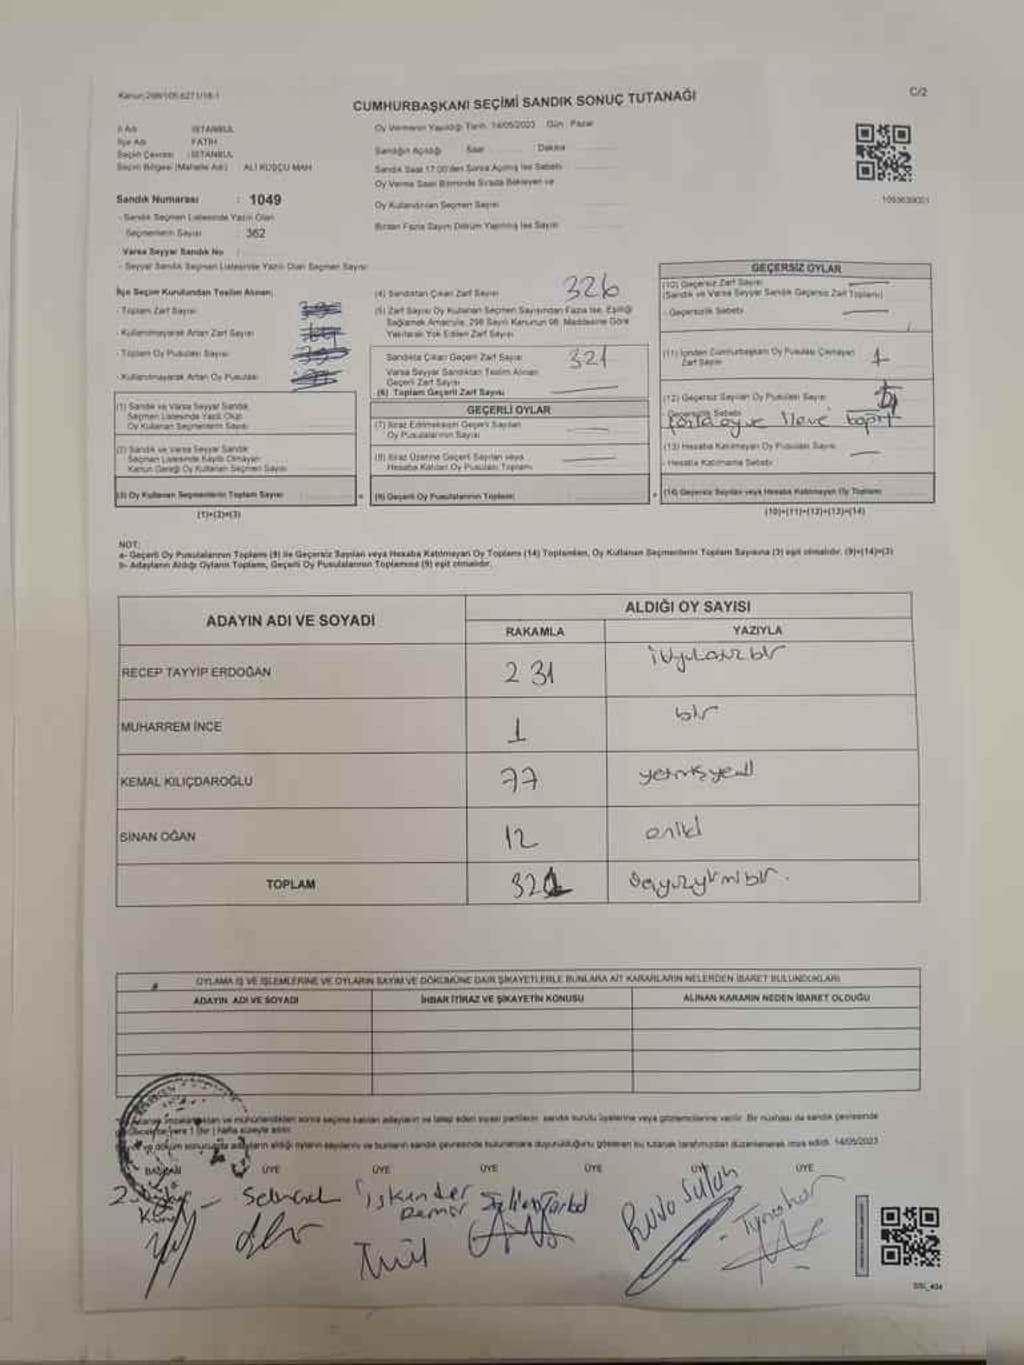 Kanun:298/105-6271/18-1
CUMHURBAŞKANI SEÇİMİ SANDIK SONUÇ TUTANAĞI
C/2
İl Adı İSTANBUL
İlçe Adı FATİH
Seçim Çevresi : İSTANBUL
Seçim Bölgesi (Mahalle Adı) : ALİ KUŞÇU MAH
Sandık Numarası : 1049
- Sandık Seçmen Listesinde Yazılı Olan
Seçmenlerin Sayısı : 362
Varsa Seyyar Sandık No
- Seyyar Sandık Seçmen Listesinde Yazılı Olan Seçmen Sayısı
Oy Vermenin Yapıldığı Tarih: 14/05/2023 Gün : Pazar
Sandığın Açıldığı Saat Dakika
Sandık Saat 17.00'den Sonra Açılmış İse Sebebi
Oy Verme Saati Bitiminde Sırada Bekleyen ve
Oy Kullandırılan Seçmen Sayısı
Birden Fazla Sayım Döküm Yapılmış İse Sayısı
İlçe Seçim Kurulundan Teslim Alınan;
- Toplam Zarf Sayısı
- Kullanılmayarak Artan Zarf Sayısı
- Toplam Oy Pusulası Sayısı
- Kullanılmayarak Artan Oy Pusulası
(1) Sandık ve Varsa Seyyar Sandık
Seçmen Listesinde Yazılı Olup
Oy Kullanan Seçmenlerin Sayısı
(2) Sandık ve Varsa Seyyar Sandık
Seçmen Listesinde Kayıtlı Olmayan
Kanun Gereği Oy Kullanan Seçmen Sayısı
(3) Oy Kullanan Seçmenlerin Toplam Sayısı
(1)+(2)=(3)
(4) Sandıktan Çıkan Zarf Sayısı 326
(5) Zarf Sayısı Oy Kullanan Seçmen Sayısından Fazla İse, Eşitliği
Sağlamak Amacıyla, 298 Sayılı Kanunun 98. Maddesine Göre
Yakılarak Yok Edilen Zarf Sayısı
Sandıkta Çıkan Geçerli Zarf Sayısı 321
Varsa Seyyar Sandıktan Teslim Alınan
Geçerli Zarf Sayısı
(6) Toplam Geçerli Zarf Sayısı
GEÇERLİ OYLAR
(7) İtiraz Edilmeksizin Geçerli Sayılan
Oy Pusulalarının Sayısı
(8) İtiraz Üzerine Geçerli Sayılan veya
Hesaba Katılan Oy Pusulası Toplamı
(9) Geçerli Oy Pusulalarının Toplamı
GEÇERSİZ OYLAR
(10) Geçersiz Zarf Sayısı
(Sandık ve Varsa Seyyar Sandık Geçersiz Zarf Toplamı)
- Geçersizlik Sebebi
(11) İçinden Cumhurbaşkanı Oy Pusulası Çıkmayan
Zarf Sayısı 1
(12) Geçersiz Sayılan Oy Pusulası Sayısı
- Geçersizlik Sebebi
(13) Hesaba Katılmayan Oy Pusulası Sayısı
- Hesaba Katılmama Sebebi
(14) Geçersiz Sayılan veya Hesaba Katılmayan Oy Toplamı
(10)+(11)+(12)+(13)=(14)
NOT:
a- Geçerli Oy Pusulalarının Toplamı (9) ile Geçersiz Sayılan veya Hesaba Katılmayan Oy Toplamı (14) Toplamları, Oy Kullanan Seçmenlerin Toplam Sayısına (3) eşit olmalıdır. (9)+(14)=(3)
b- Adayların Aldığı Oyların Toplamı, Geçerli Oy Pusulalarının Toplamına (9) eşit olmalıdır.
ADAYIN ADI VE SOYADI ALDIĞI OY SAYISI
RAKAMLA YAZIYLA
RECEP TAYYİP ERDOĞAN 231
MUHARREM İNCE 1 bir
KEMAL KILIÇDAROĞLU 77 yetmişyedi
SİNAN OĞAN 12 oniki
TOPLAM 321 üçyüzyirmibir.
OYLAMA İŞ VE İŞLEMLERİNE VE OYLARIN SAYIM VE DÖKÜMÜNE DAİR ŞİKAYETLERLE BUNLARA AİT KARARLARIN NELERDEN İBARET BULUNDUKLARI
ADAYIN ADI VE SOYADI İHBAR İTİRAZ VE ŞİKAYETİN KONUSU ALINAN KARARIN NEDEN İBARET OLDUĞU
ve mühürlendikten sonra seçime katılan adayların ve talep eden siyasi partilerin sandık kurulu üyelerine veya gözlemcilerine verilir. Bir nüshası da sandık çevresinde
adayların aldığı oyların sayılarını ve bunların sandık çevresinde bulunanlara duyurulduğunu gösteren bu tutanak tarafımızdan düzenlenerek imza edildi. 14/05/2023
BAŞKAN ÜYE ÜYE ÜYE ÜYE ÜYE ÜYE
İskender
Demir